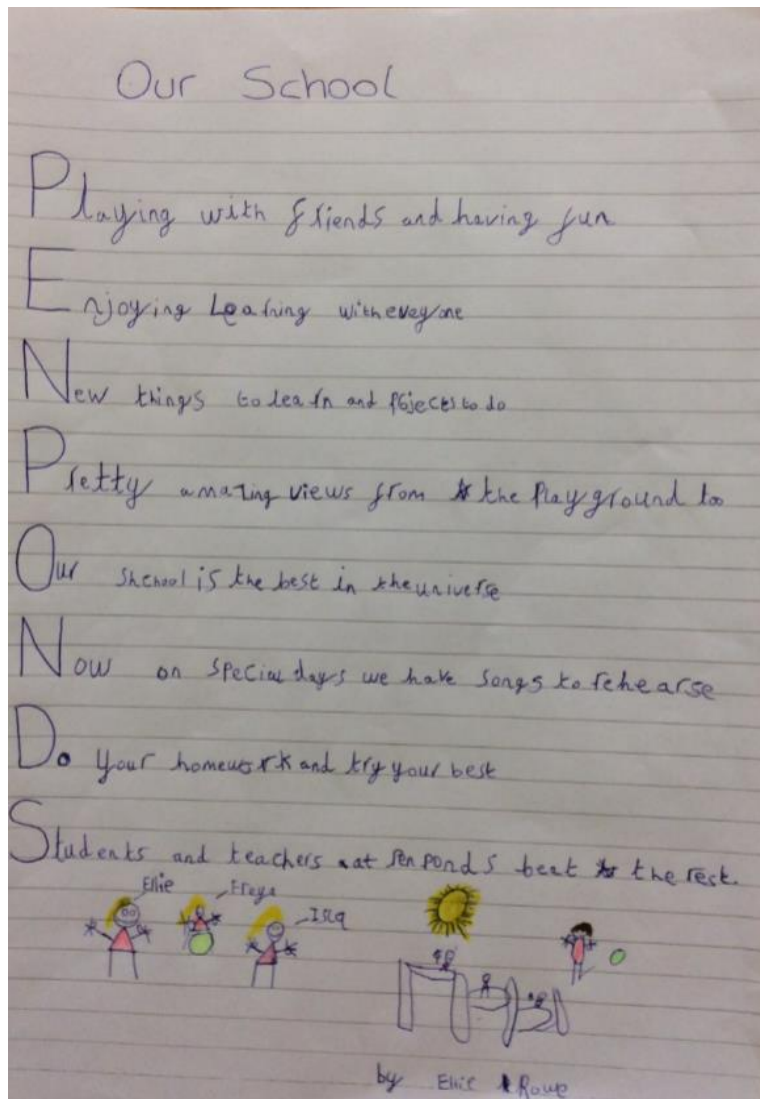 Our School
Playing with friends and having fun
Enjoying Learning with everyone
New things to learn and projects to do
Pretty amazing views from the playground too
Our shchool is the best in the universe
Now on special days we have songs to rehearse
Do your homework and try your best
Students and teachers at Penponds beat the rest.
Ellie Freya Isla
by Ellie Rowe